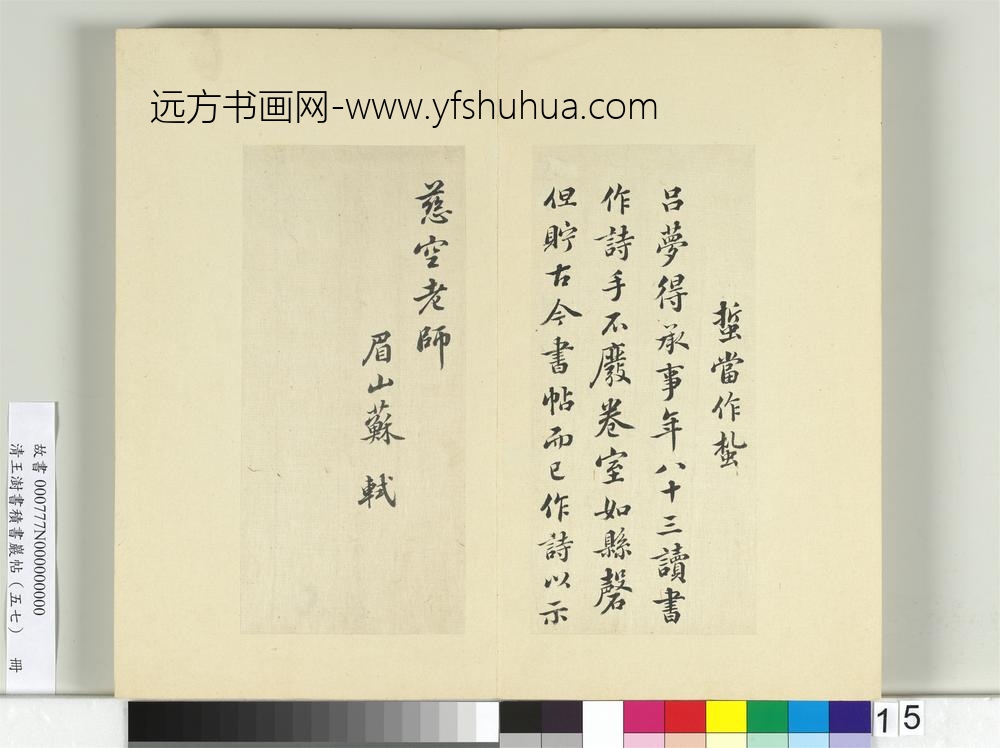 远方书画网-www.yfshuhua.com
蜇當作蚻
呂夢得承事年八十三讀書
作詩手不廢卷室如縣磬
但貯古今書帖而已作詩以示
慈空老師
眉山蘇軾
故書 000777N000000000
清王澍書積書巖帖(五七) 冊
15